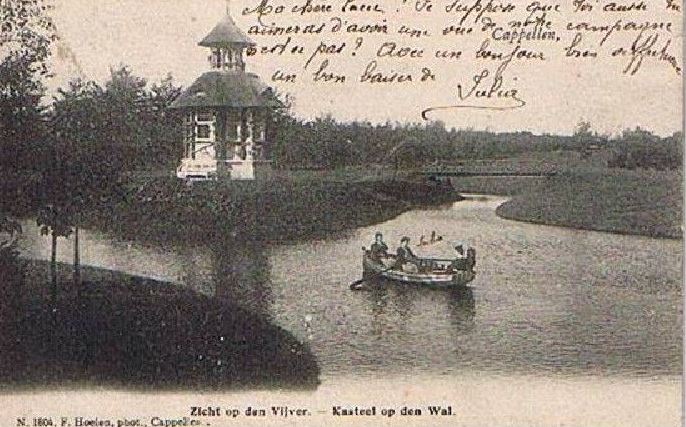 Ma chère Lucie! Je suppose que toi aussi tu
aimeras d'avoir une vue de notre campagne
Cappellen,
n'est ce pas? Avec un bonjour bien affectueux
un bon baiser de
Julia
Zicht op den Vijver. — Kasteel op den Wal.
N. 1604, F. Hoelen, phot., Cappellen.